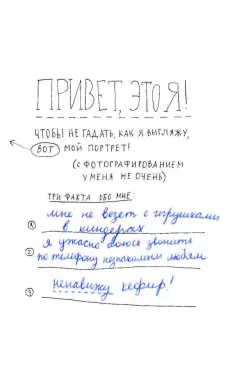 ПРИВЕТ, ЭТО Я!
ЧТОБЫ НЕ ГАДАТЬ, КАК Я ВЫГЛЯЖУ,
ВОТ МОЙ ПОРТРЕТ!
(С ФОТОГРАФИРОВАНИЕМ
У МЕНЯ НЕ ОЧЕНЬ)
ТРИ ФАКТА ОБО МНЕ:
мне не везет с игрушками
① в киндерах
я ужасно боюсь звонить
② по телефону незнакомым людям
③ ненавижу кефир!